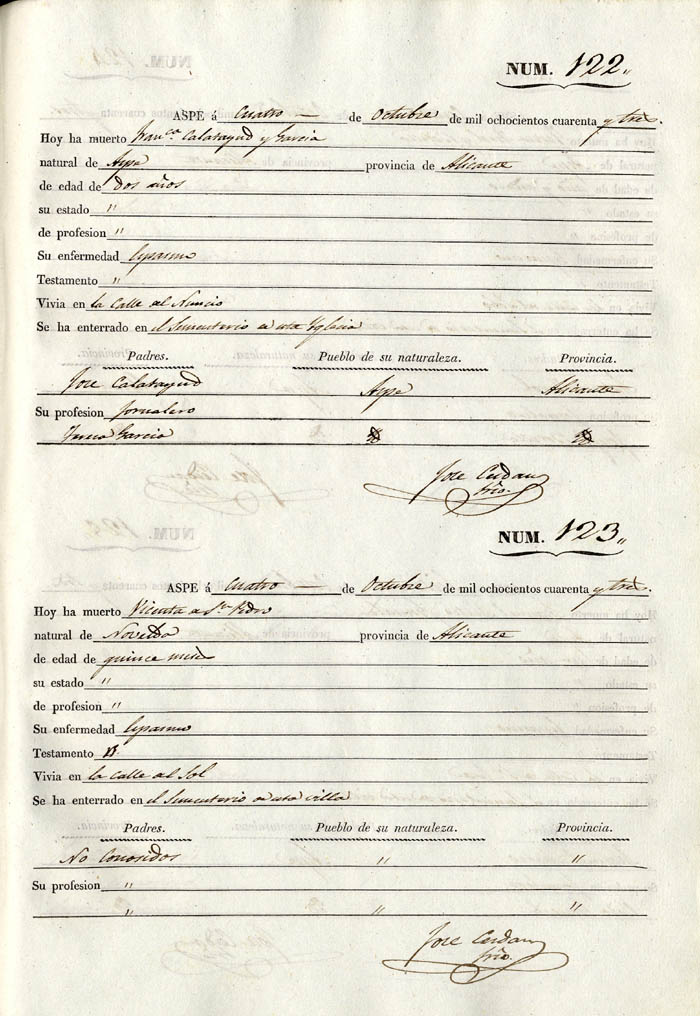 NUM. 122"
ASPE á Cuatro de Octubre de mil ochocientos cuarenta y tres.
Hoy ha muerto Fran.ca Calatayud y Garcia
natural de Aspe provincia de Alicante
de edad de dos años
su estado "
de profesion "
Su enfermedad Espasmo
Testamento "
Vivia en la Calle del Nuncio
Se ha enterrado en el Simenterio de esta Yglecia
Padres. Pueblo de su naturaleza. Provincia.
Jose Calatayud Aspe Alicante
Su profesion Jornalero
Garcia
Jose Cerdan
Srio.
NUM. 123"
ASPE á Cuatro de Octubre de mil ochocientos cuarenta y tres.
Hoy ha muerto Vicenta de Sn. Pedro
natural de Novelda provincia de Alicante
de edad de quince meses
su estado "
de profesion "
Su enfermedad Espasmo
Testamento
Vivia en la Calle del Sol
Se ha enterrado en el Simenterio de esta villa
Padres. Pueblo de su naturaleza. Provincia.
No Conosidos " "
Su profesion "
" " "
Jose Cerdan
Srio.